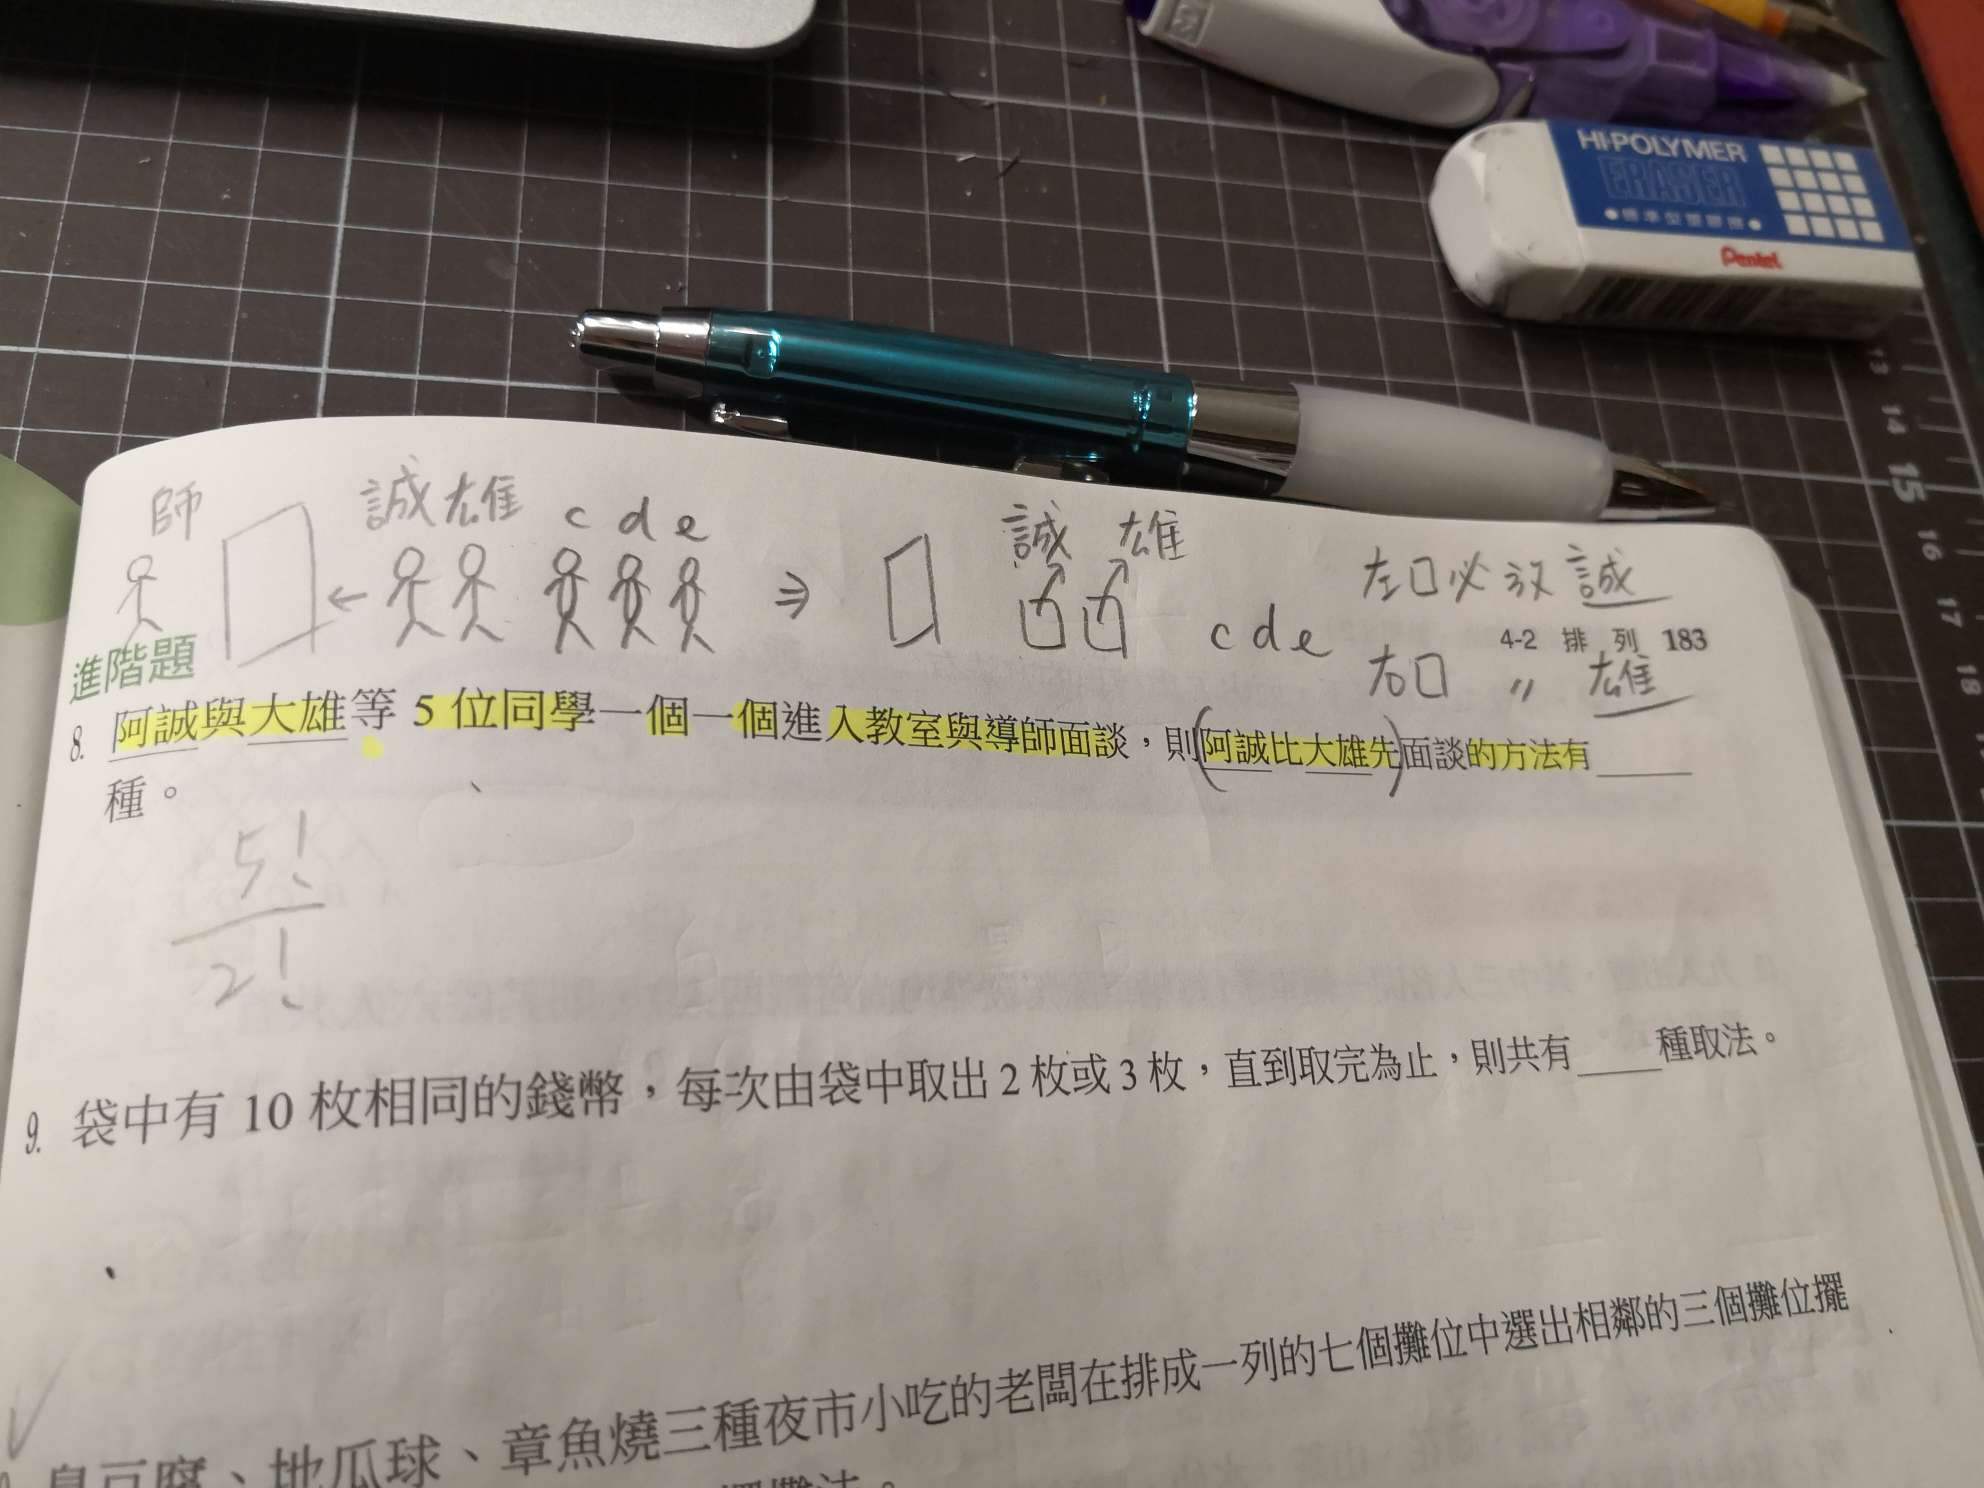 HI-POLYMER
ERASER
Pentel
13
14
15
16
17
18
師
誠 雄 c d e
誠 雄
⇒
c d e
左口必放誠
右口 〃 雄
4-2 排 列 183
進階題
8. 阿誠與大雄等 5 位同學一個一個進入教室與導師面談，則(阿誠比大雄先)面談的方法有_____
種。
5!
2!
9. 袋中有 10 枚相同的錢幣，每次由袋中取出 2 枚或 3 枚，直到取完為止，則共有____種取法。
臭豆腐、地瓜球、章魚燒三種夜市小吃的老闆在排成一列的七個攤位中選出相鄰的三個攤位擺